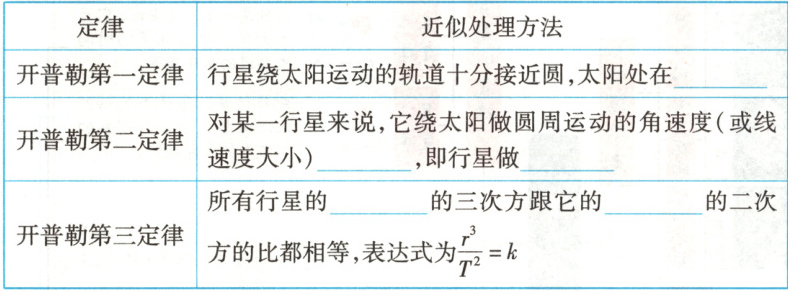 定律 近似处理方法
开普勒第一定律 行星绕太阳运动的轨道十分接近圆,太阳处在________
开普勒第二定律 对某一行星来说,它绕太阳做圆周运动的角速度(或线
速度大小)________,即行星做________
开普勒第三定律 所有行星的________的三次方跟它的________的二次
方的比都相等,表达式为r³/T²=k